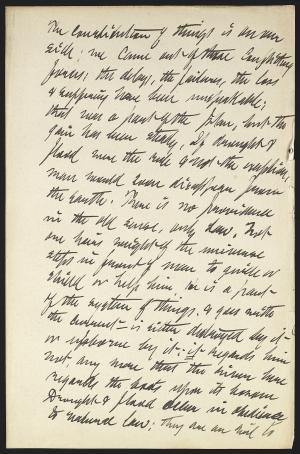 The constitution of things is on our
side; we came out of these conflicting
forces; the delays, the failures, the loss
& suffering have been unspeakable;
that was a part of the plan, but the
gain has been steady. If drought &
flood were the rule & not the exception,
man would soon disappear from
the earth. There is no providence
in the old sense, only Law. Not
one hair's weight of the universe
steps in front of man to guide or
shield or help him, he is a part
of the system of things, & goes with
the current - is either destroyed by it
or upborne by it; it regards him
not, any more than the river here
regards the boats upon its bosom
Drought & flood alike in obedience
to natural law; they are an evil to